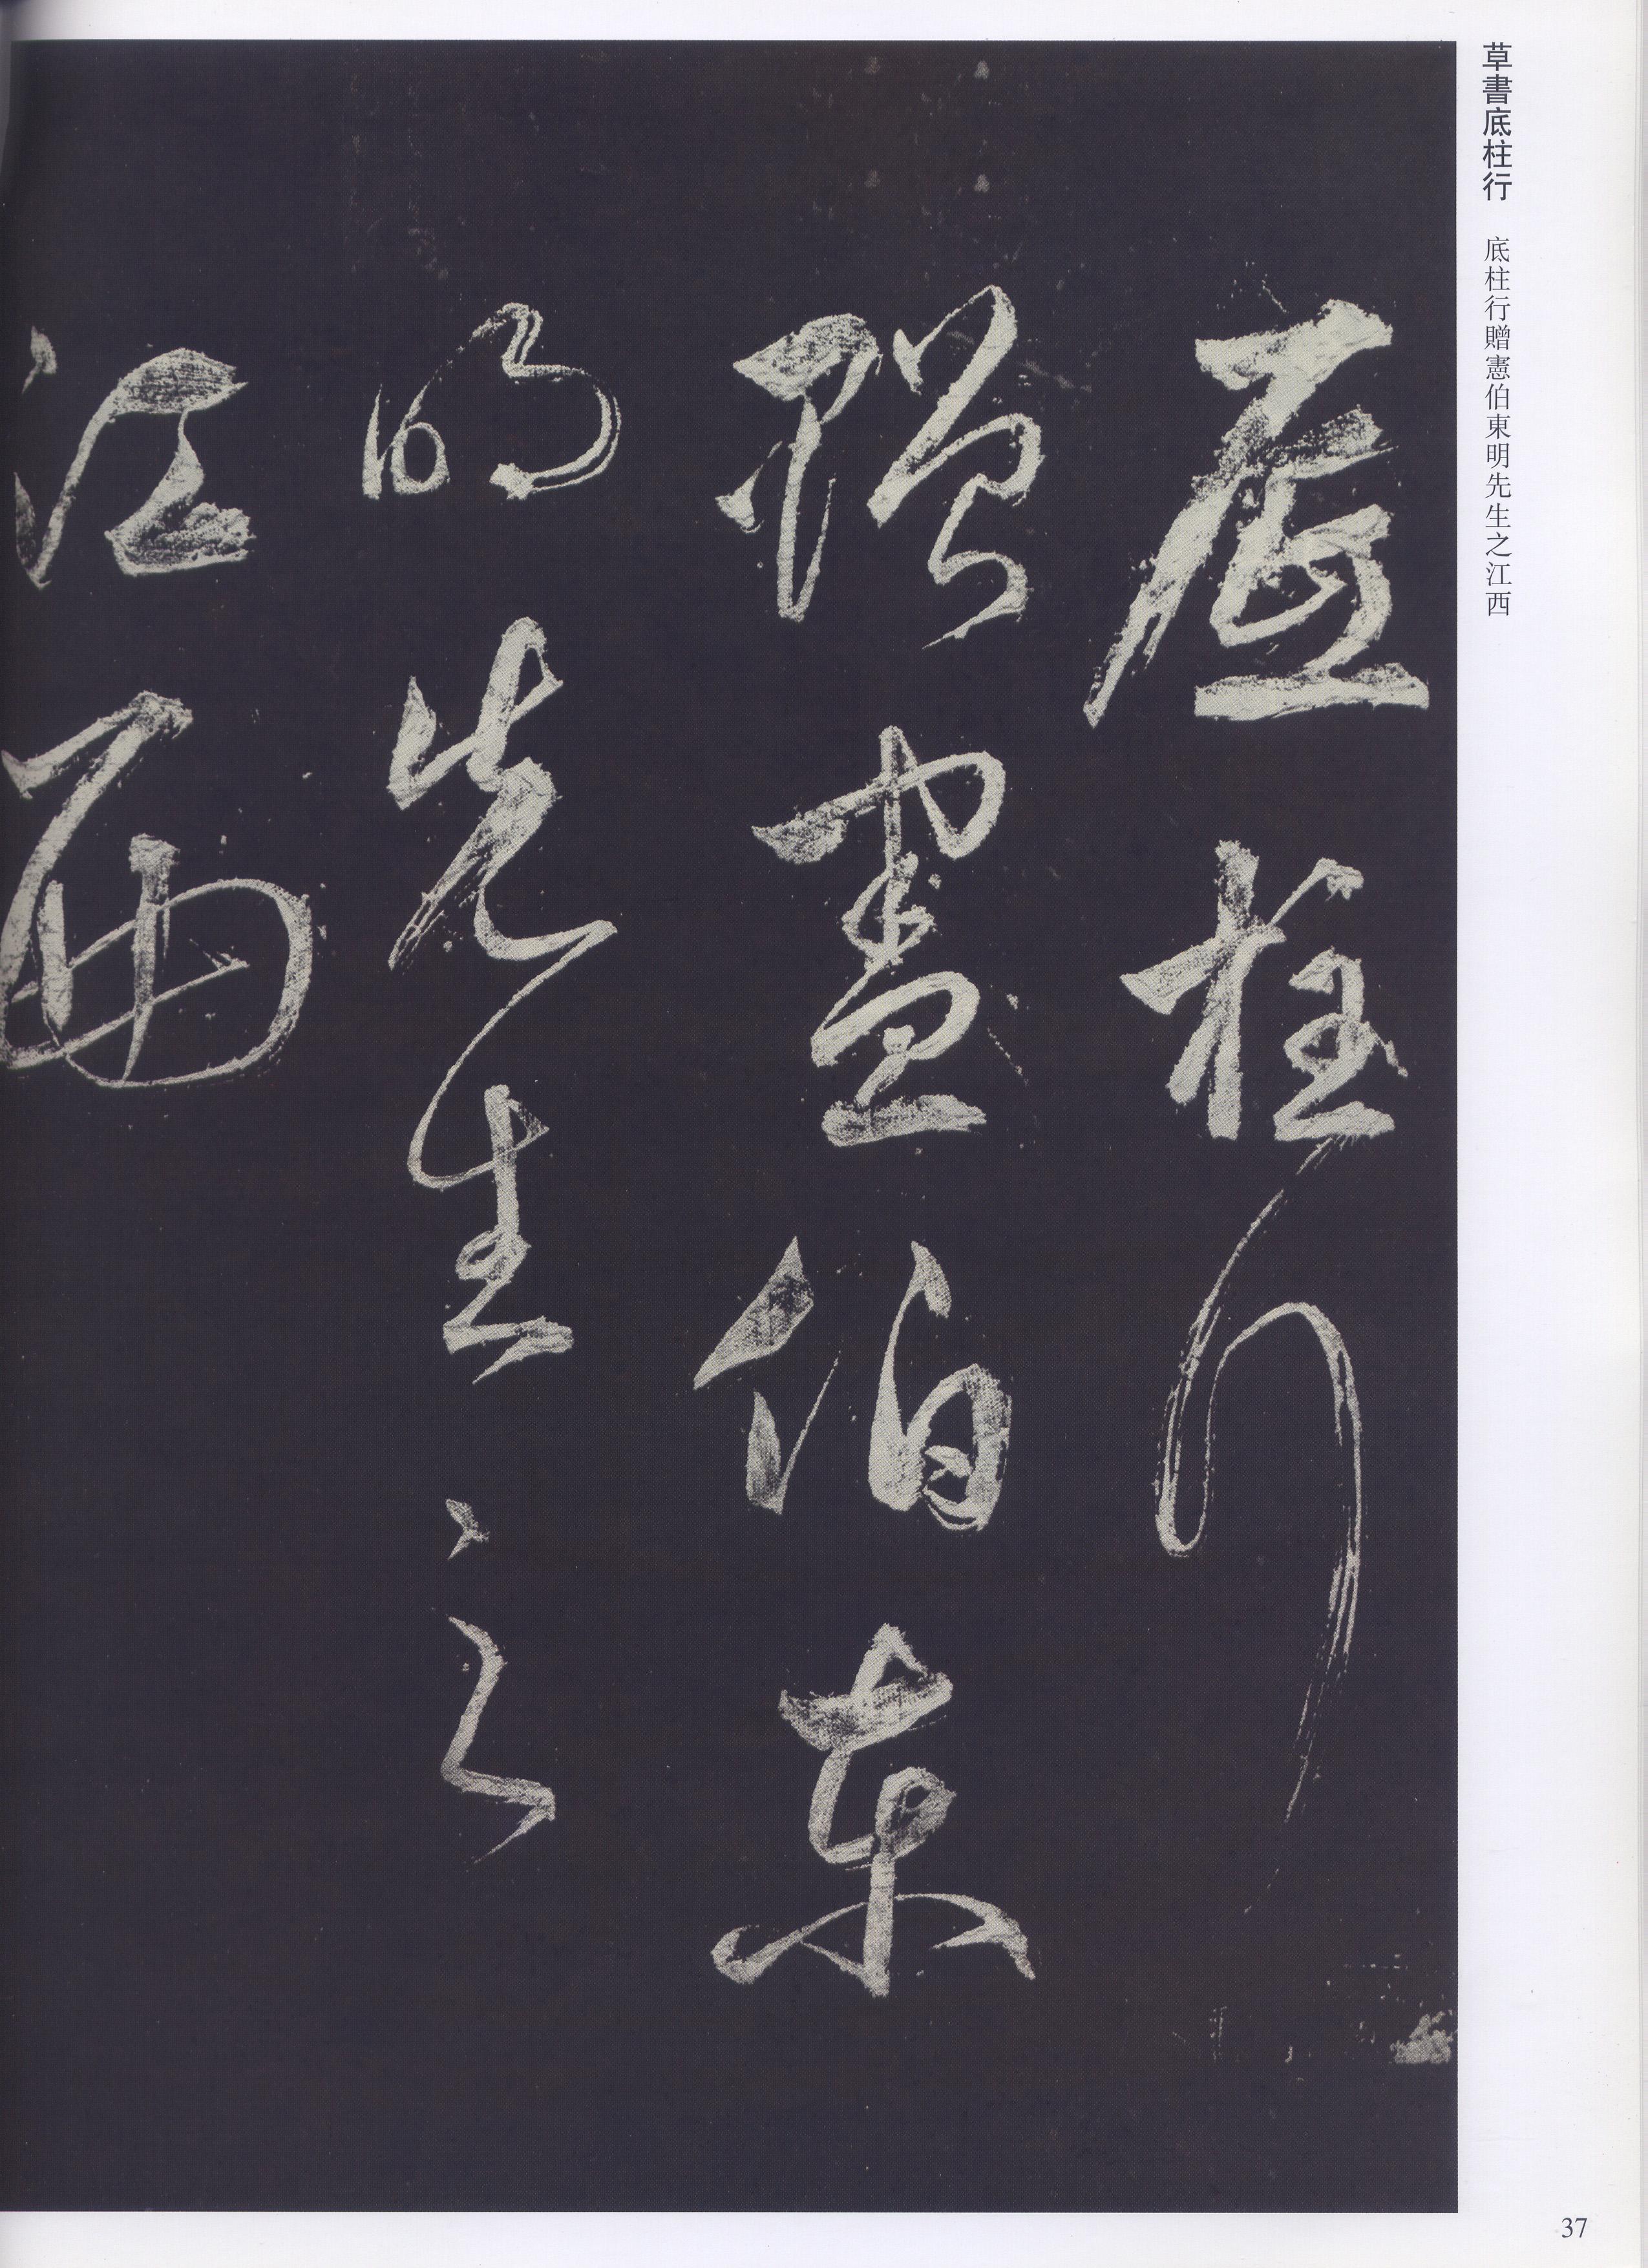 草書底柱行　底柱行贈憲伯東明先生之江西
底柱行
贈憲伯東
明先生之
江西
37